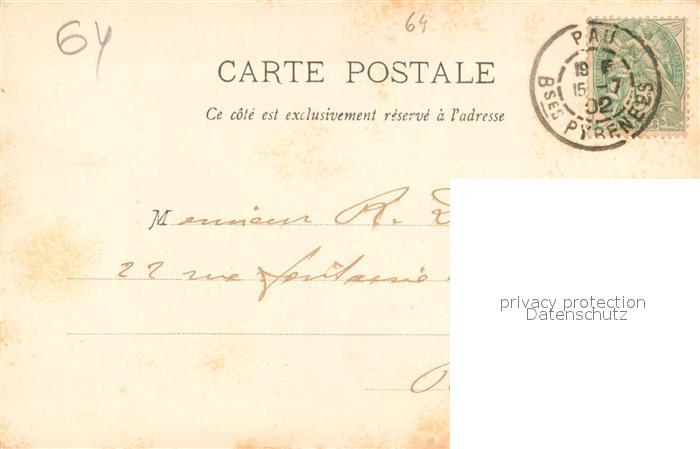 64
64
PAU
19 E
15 -7
02
Bses PYRENEES
CARTE POSTALE
Ce côté est exclusivement réservé à l'adresse
Monsieur R.
22 rue fontaine
privacy protection
Datenschutz